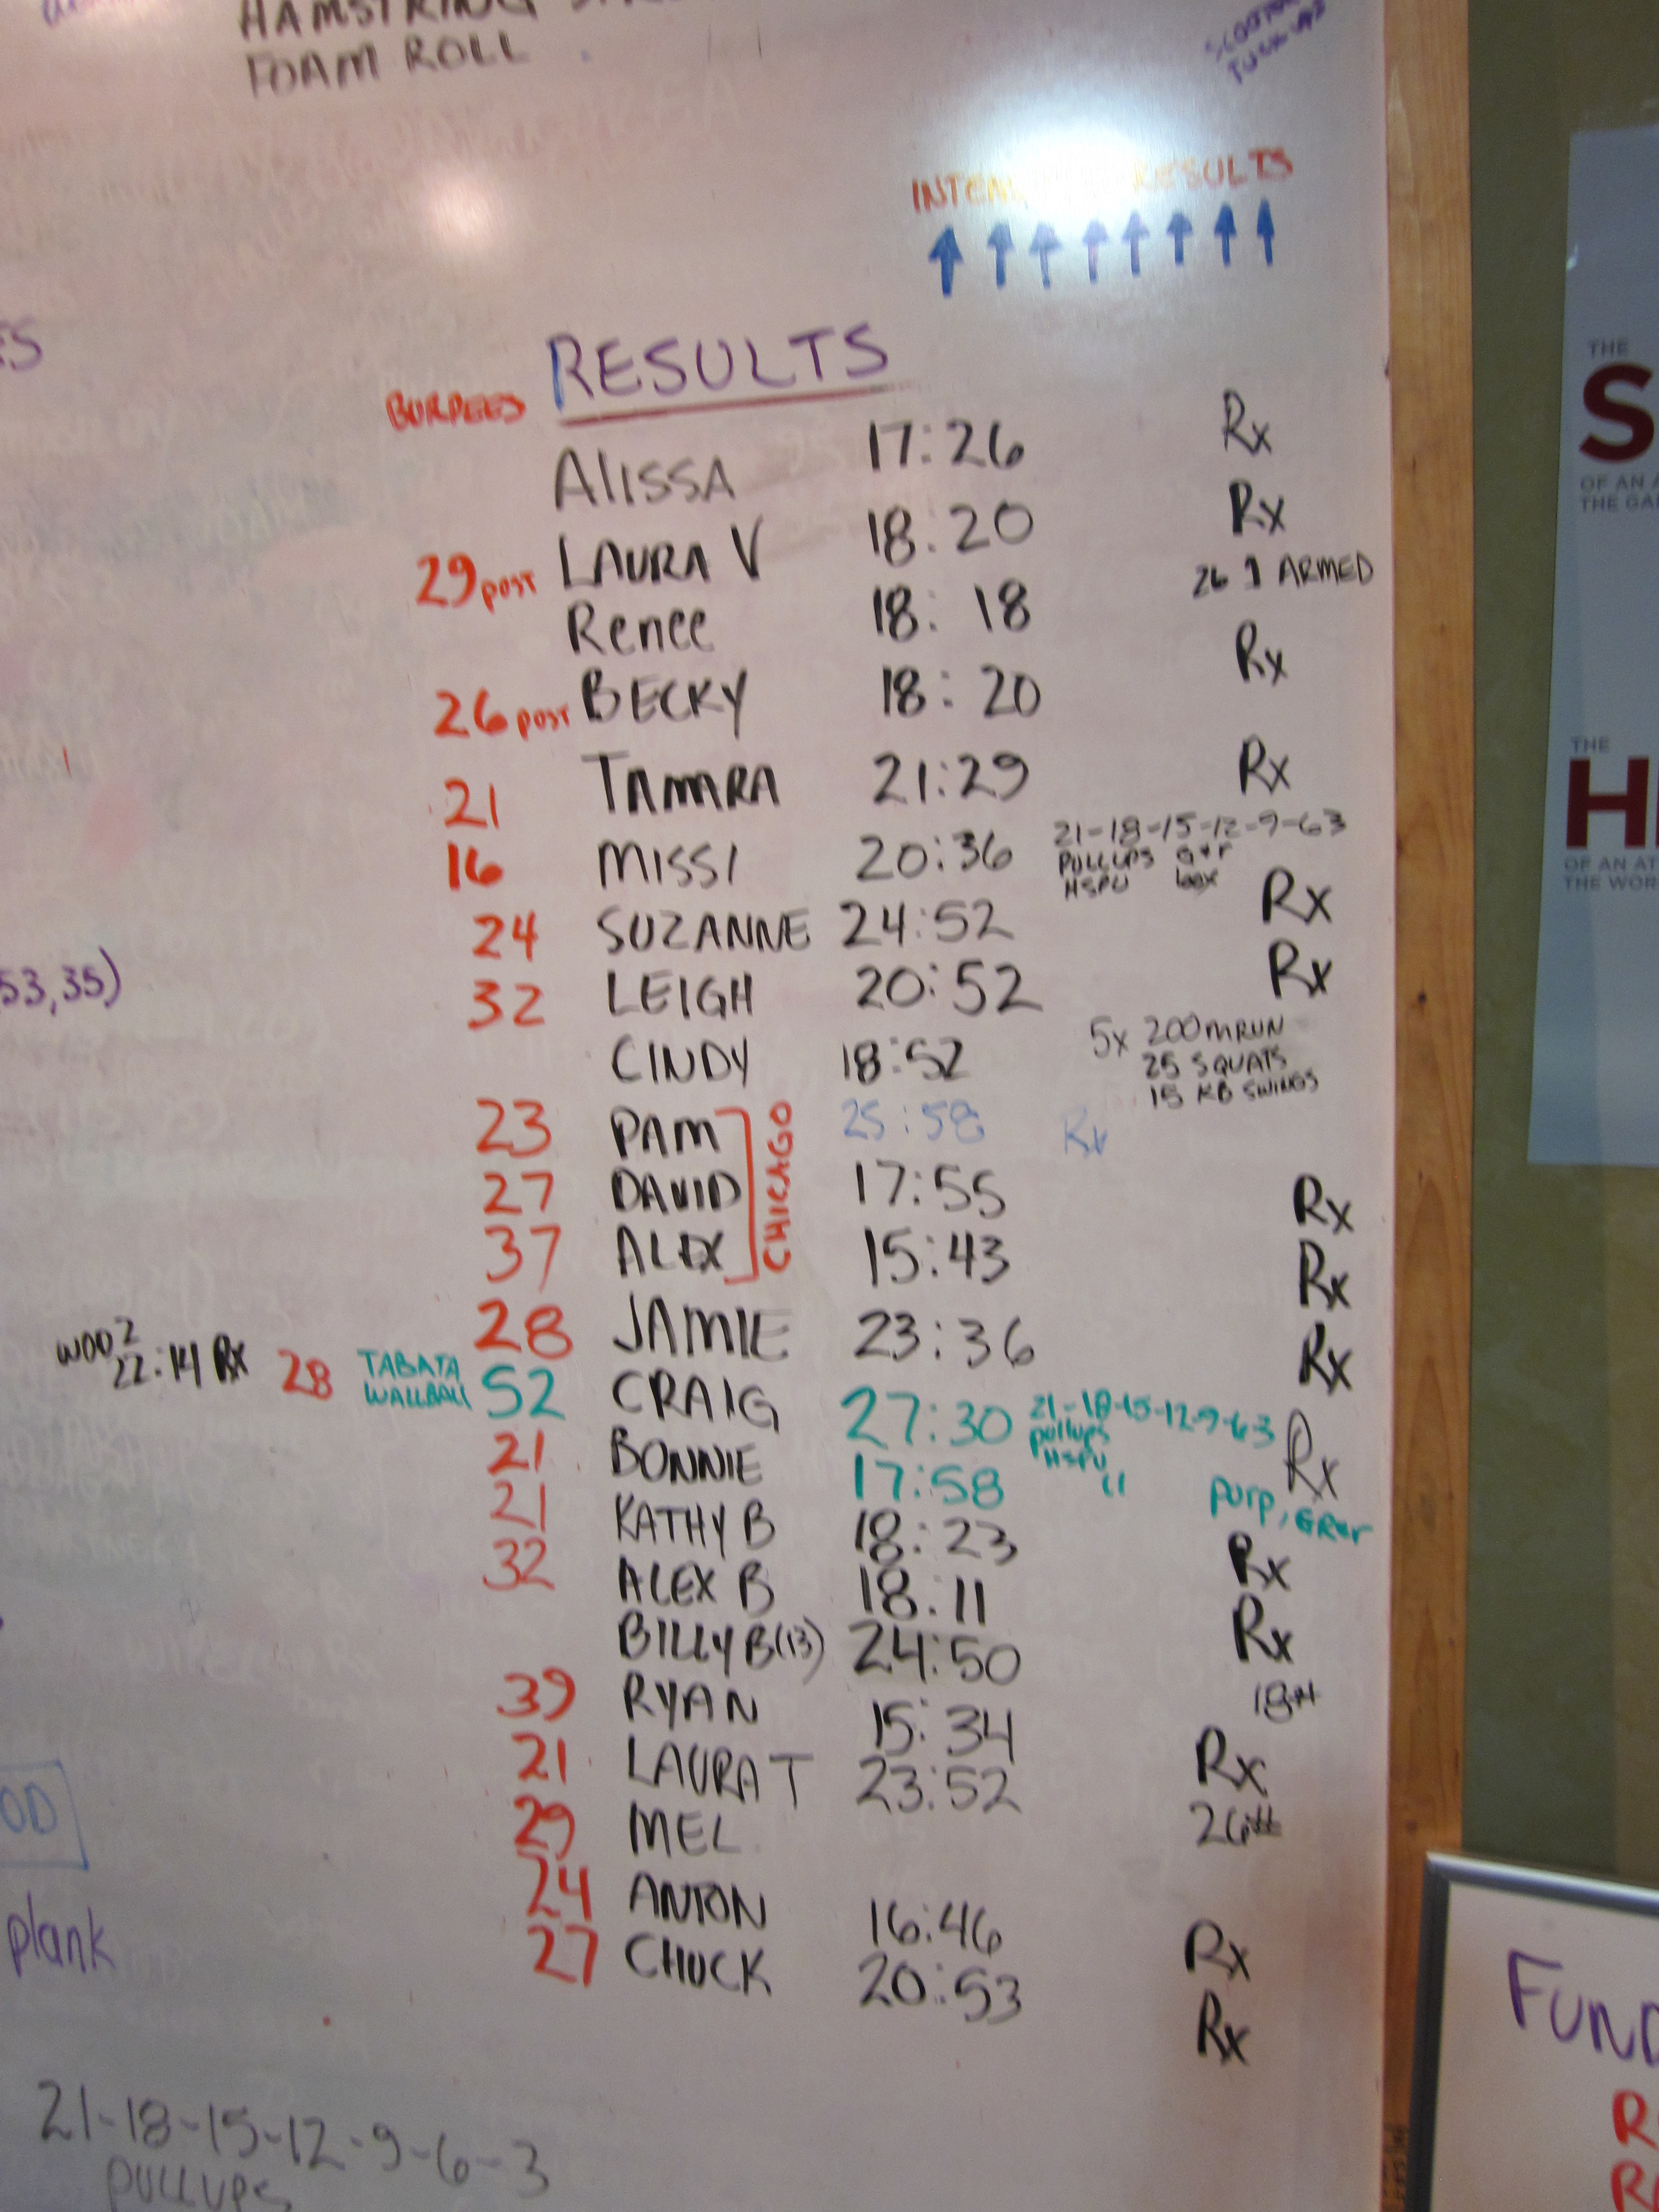 HAMSTRING
FOAM ROLL
RESULTS
RESULTS
BURPEES
ALISSA 17:26 Rx
29 post LAURA V 18:20 Rx
Renee 18:18 26 1 ARMED
26 post BECKY 18:20 Rx
21 TAMARA 21:29 Rx
16 MISSI 20:36 21-18-15-12-9-6 3
PULLUPS
HSPU box
24 SUZANNE 24:52 Rx
32 LEIGH 20:52 Rx
CINDY 18:52 5x 200m RUN
25 SQUATS
15 KB SWINGS
23 PAM 25:58 Rx
CHICAGO
27 DAVID 17:55 Rx
37 ALEX 15:43 Rx
28 JAMIE 23:36 Rx
WOD 2
22:14 Rx 28 TABATA
WALLBALL 52 CRAIG 27:30 21-18-15-12-9-6 3
pullups
HSPU Rx
21 BONNIE 17:58 purp,
21 KATHY B 18:23 Rx
32 ALEX B 18:11 Rx
BILLY B (13) 24:50 18#
39 RYAN 15:34 Rx
21 LAURA T 23:52 26#
29 MEL
24 ANTON 16:46 Rx
27 CHUCK 20:53 Rx
ES
53,35)
OD
plank
21-18-15-12-9-6-3
PULLUPS
THE
S
THE
H
FUND
R
R